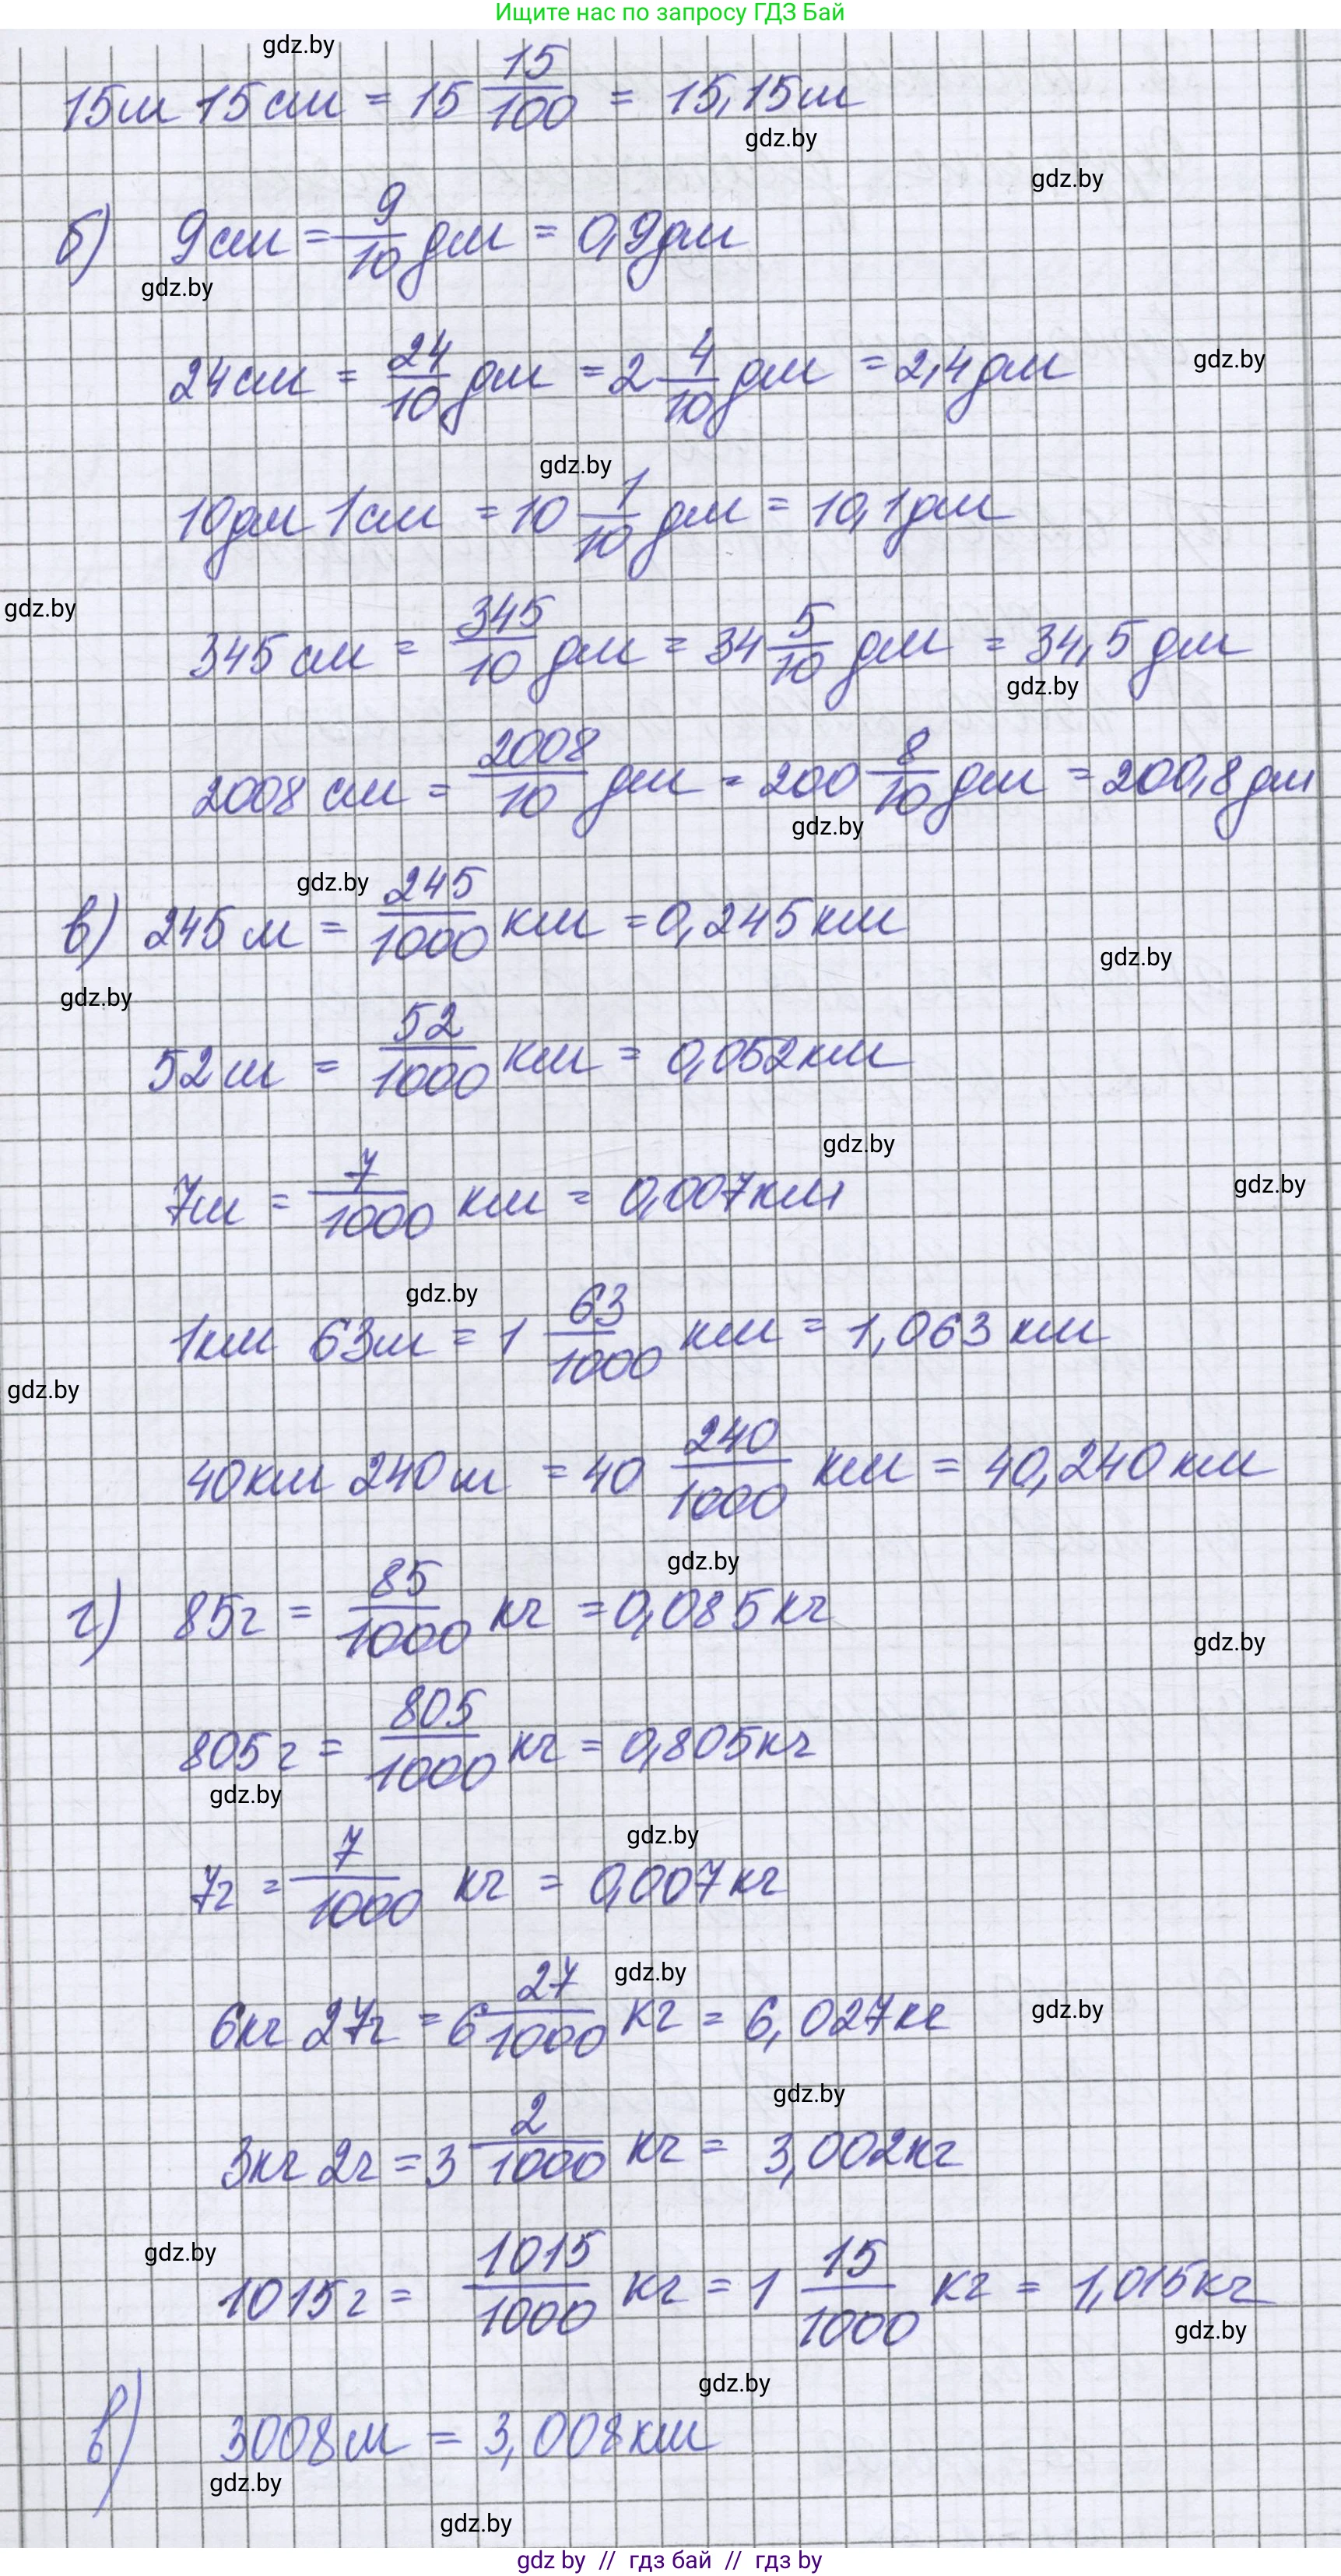 Ищите нас по запросу ГДЗ Бай
gdz.by
15м 15см = 15 15/100 = 15,15м
gdz.by
gdz.by
б) 9см = 9/10 дм = 0,9дм
gdz.by
24см = 24/10 дм = 2 4/10 дм = 2,4дм
gdz.by
gdz.by
10дм 1см = 10 1/10 дм = 10,1дм
gdz.by
345 см = 345/10 дм = 34 5/10 дм = 34,5 дм
gdz.by
2008 см = 2008/10 дм = 200 8/10 дм = 200,8 дм
gdz.by
gdz.by
в) 245 м = 245/1000 км = 0,245 км
gdz.by
gdz.by
52м = 52/1000 км = 0,052км
gdz.by
7м = 7/1000 км = 0,007км
gdz.by
gdz.by
1км 63м = 1 63/1000 км = 1,063 км
gdz.by
40км 240м = 40 240/1000 км = 40,240 км
gdz.by
г) 85г = 85/1000 кг = 0,085кг
gdz.by
805г = 805/1000 кг = 0,805кг
gdz.by
gdz.by
7г = 7/1000 кг = 0,007кг
gdz.by
6кг 27г = 6 27/1000 кг = 6,027кг
gdz.by
gdz.by
3кг 2г = 3 2/1000 кг = 3,002кг
gdz.by
1015г = 1015/1000 кг = 1 15/1000 кг = 1,015кг
gdz.by
gdz.by
в) 3008м = 3,008км
gdz.by
gdz.by
gdz by // гдз бай // гдз by